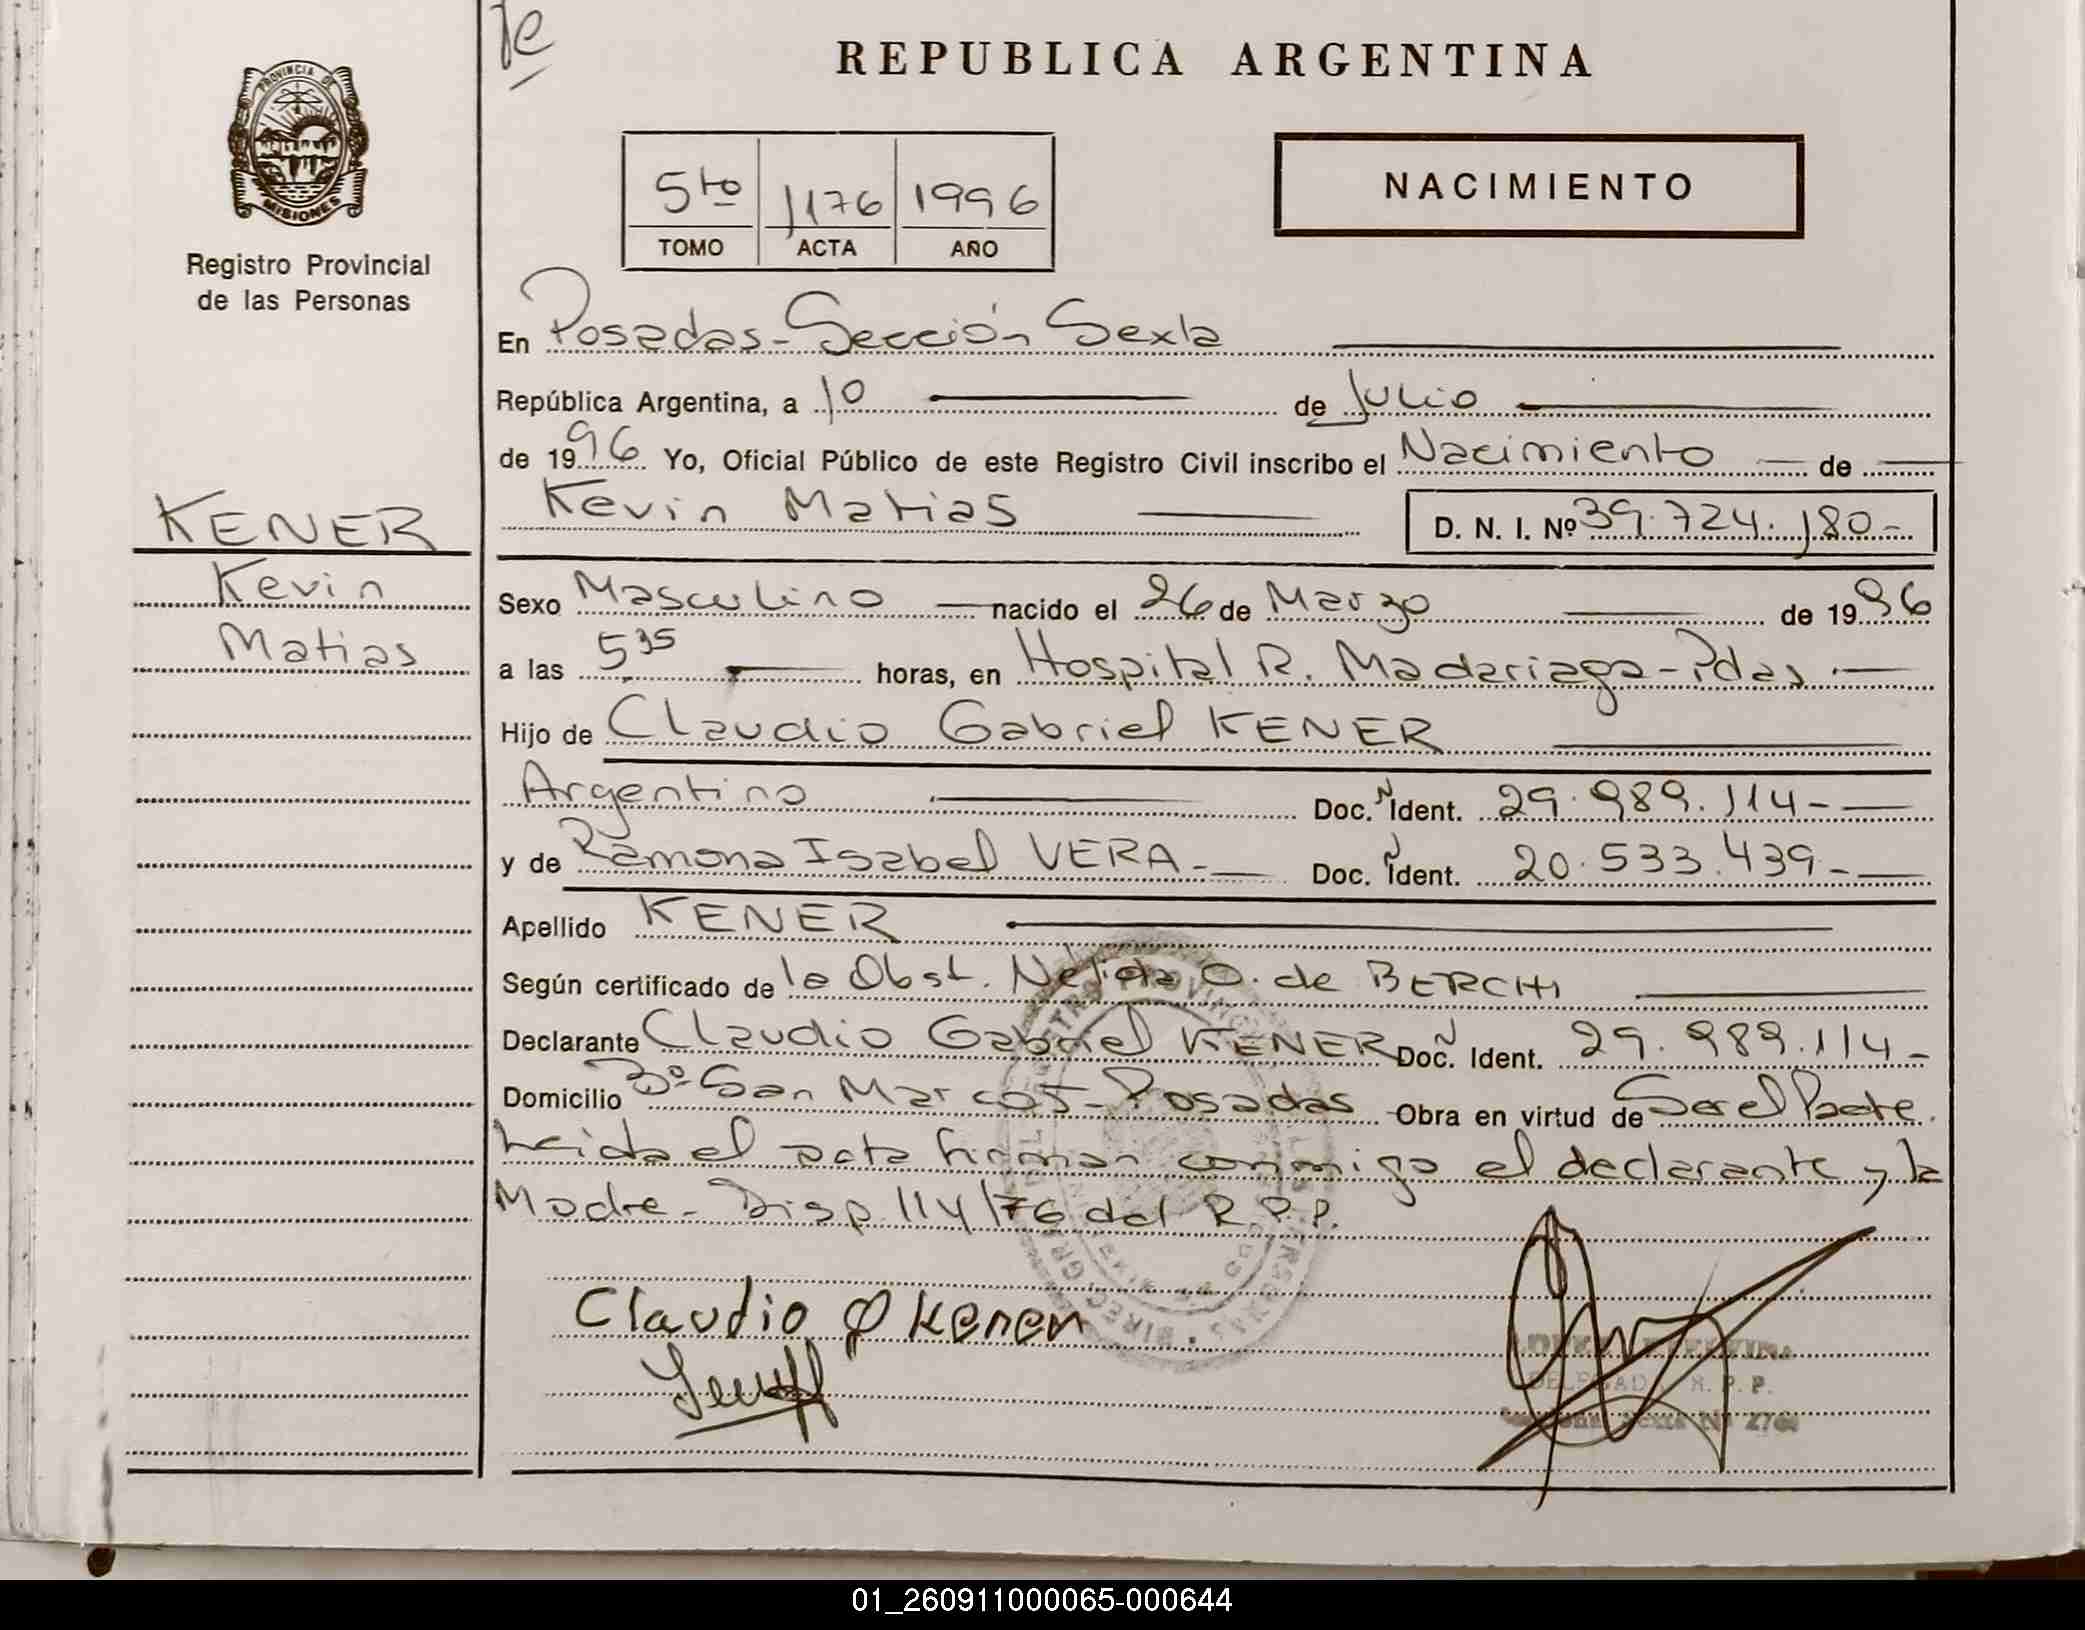 REPUBLICA ARGENTINA
PROVINCIA DE
MISIONES
Registro Provincial
de las Personas
5to 1176 1996
TOMO ACTA AÑO
NACIMIENTO
En Posadas - Sección Sexta
República Argentina, a 10 de Julio
de 1996 Yo, Oficial Público de este Registro Civil inscribo el Nacimiento de
Kevin Matias D. N. I. Nº 39.724.180.-
KENER
Kevin
Matias
Sexo Masculino nacido el 26 de Marzo de 1996
a las 5 35 horas, en Hospital R. Madariaga - Pdas
Hijo de Claudio Gabriel KENER
Argentino Doc. N Ident. 29.989.114-
y de Ramona Isabel VERA - Doc. N Ident. 20.533.439-
Apellido KENER
Según certificado de la Obst. Nelida O. de BERCHI
Declarante Claudio Gabriel KENER Doc. N Ident. 29.989.114-
Domicilio Bº San Marcos - Posadas Obra en virtud de Ser el Padre.
Leida el acta firman conmigo el declarante y la
Madre - Disp 114/76 del R.P.P.
Claudio G Kener
DELEGADA R. P. P.
01_260911000065-000644